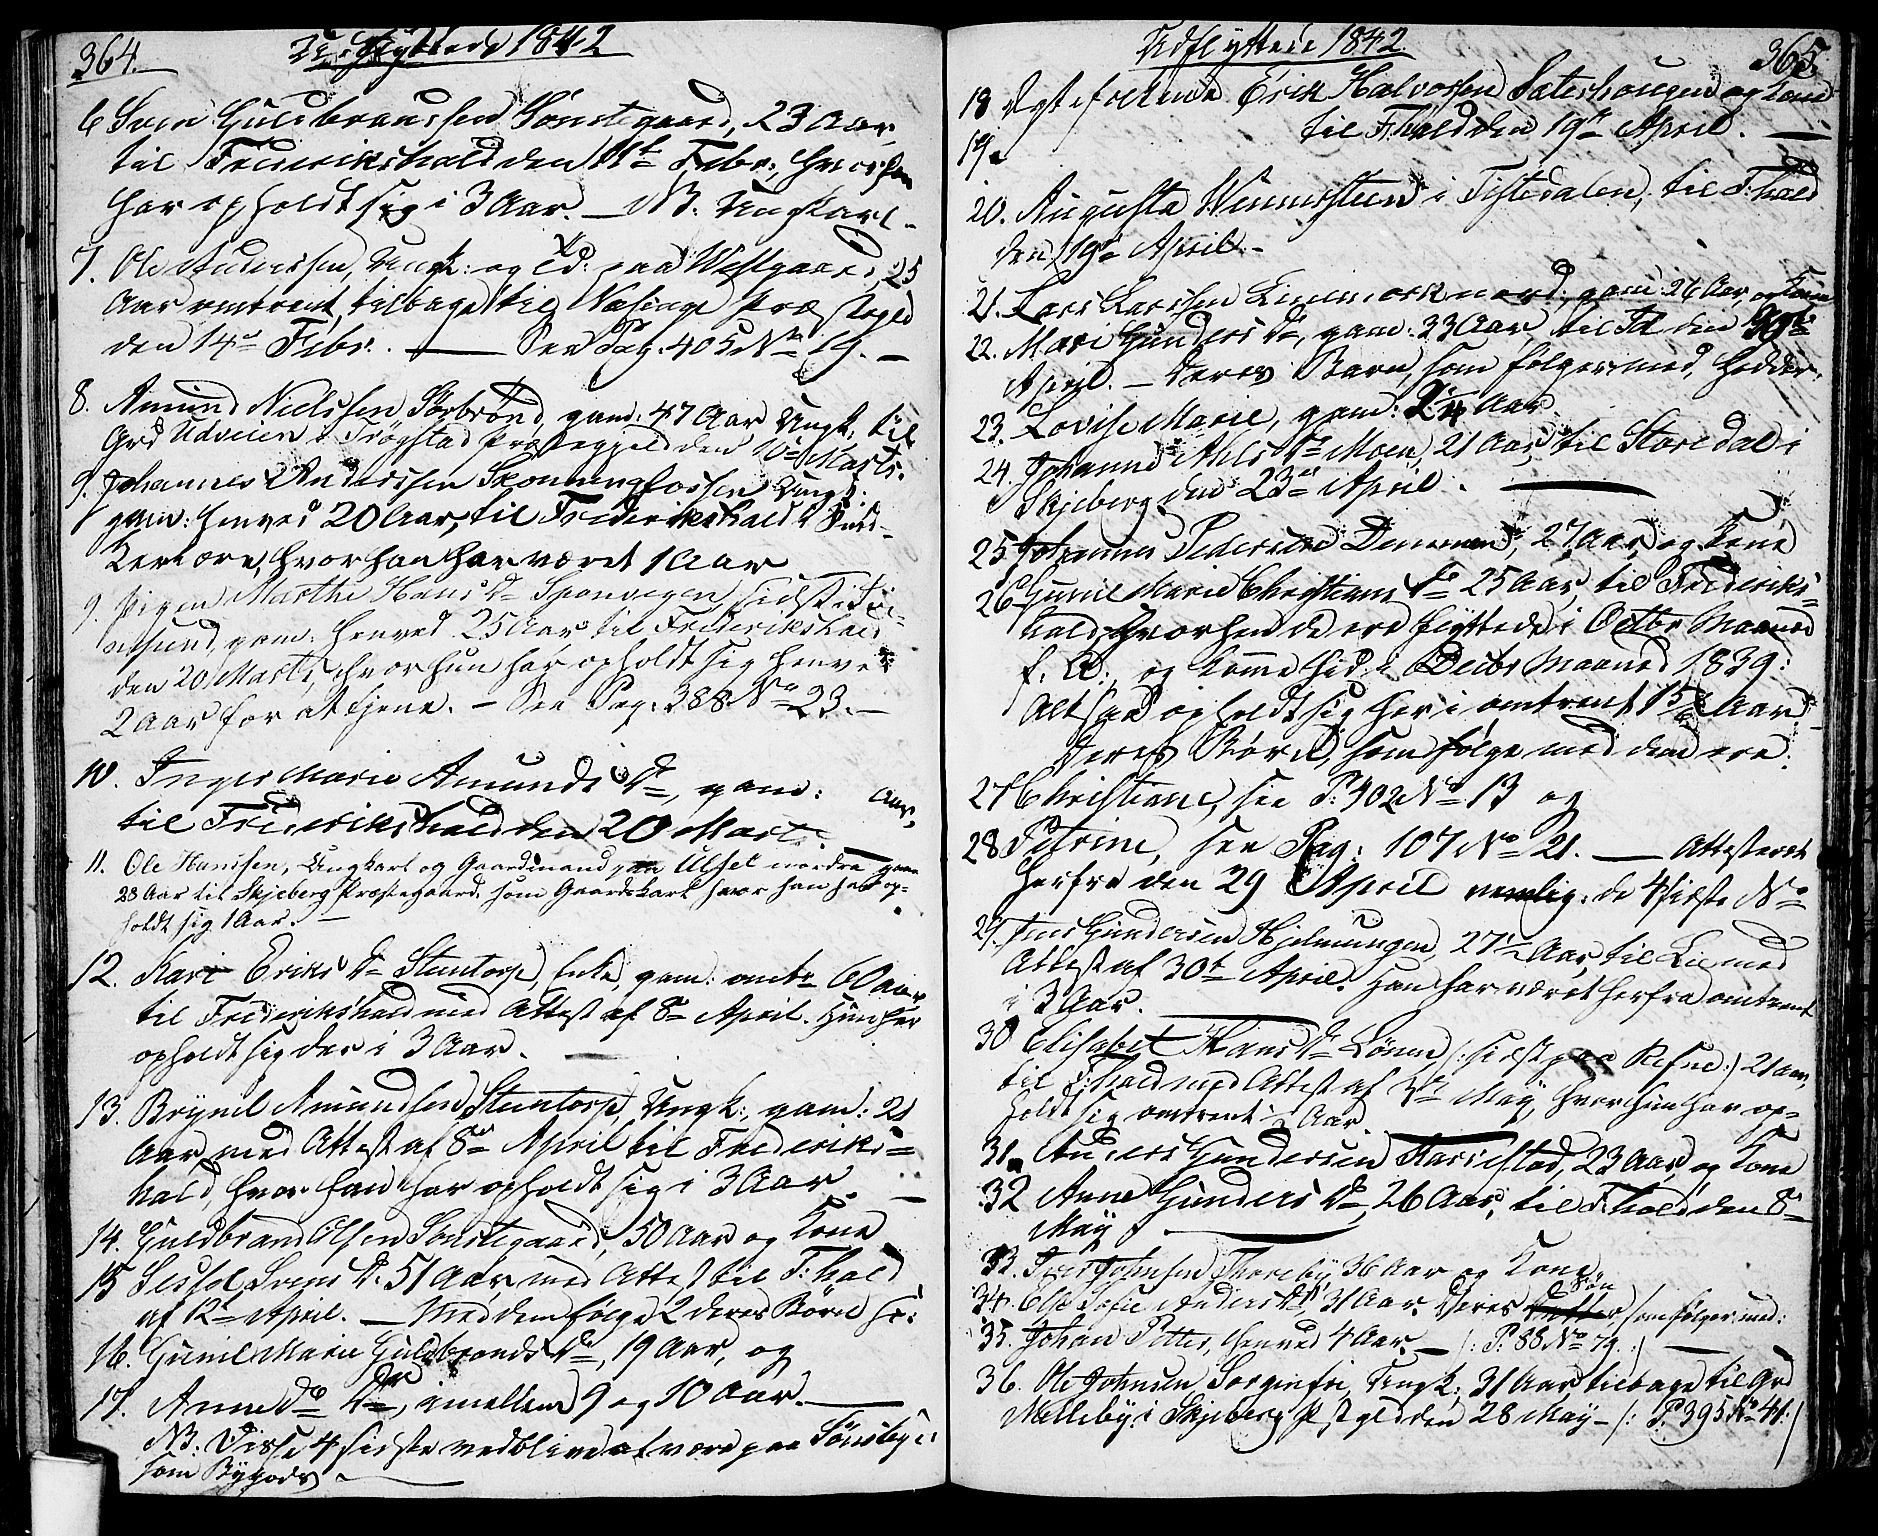 364.
Udflyttede 1842
6 Sven Guldbrandssen Sønstegaard, 23 Aar
til Frederikshald den 11t Febr:, hvor han
har opholdt sig i 3 Aar. — NB. Ungkarl.
7. Ole Andersen, Ungk: og Ed: paa Westgaard, 25
Aar omtrent, tilbage til Næsinge Præstegield
den 14de Febr. — See Pag. 405 No 19. —
8. Amund Nielssen Sørbrønd, gam: 47 Aar Ungk, til
Grd Udveien i Trøgstad Præstegjeld den 10de Marts.
9. Johannes Anderssen Skonningfossen Ungk:
gam: henved 20 Aar, til Frederikshald i Snid-
kerlære, hvor han har været 1 Aar
9. Pigen Marthe Hans Dr Sponvegen, sidst i
gam: henved 25 Aar til Frederikshald
den 20 Marts, hvor hun har opholdt sig henved
2 Aar for at tjene. — See Pag. 388 No 23. —
10. Inger Marie Amunds Dr, gam: Aar,
til Frederikshald den 20 Marts.
11. Ole Hanssen, Ungkarl og Gaardmand paa Ulsel nordre gam
28 Aar til Skjeberg Præstegaard, som Gaardskarl hvor han har op-
holdt sig 1 Aar. —
12. Kari Eriks Dr Stentorp, Enke, gam: omtr 60 Aar
til Frederikshald med Attest af 8de April. Hun har
opholdt sig der i 3 Aar. —
13. Brynil Amundsen Stentorp, Ungk:, gam: 21
Aar med Attest af 8de April til Frederiks-
hald, hvor han har opholdt sig i 3 Aar. —
14. Guldbrand Olsen Sønstegaard, 50 Aar og Kone
15 Sissel Svens Dr 51 Aar, med Attest til F:hald
af 12t April. — Med dem følge 2 deres Børn
16. Gunil Marie Guldbrands Dr, 19 Aar, og
17. Anne do Dr, imellem 9 og 10 Aar. —
NB. Disse 4 sidste vedblive at være paa Sønsby
som Bygods —
Udflyttede 1842.
365.
18 Ægtefolkene Erik Halvorsen Sæterhaugen og Kone
19. til F:hald den 19de April. —
20. Augusta Winnersteen i Tistedalen, til F:hald
den 19de April. —
21. Lars Larssen Linnerk nord: gam: 26 Aar og Kone
22. Mari Gunders Dr, gam: 33 Aar, til Id den
April. — Deres Barn, som følger med, hedder
23. Lovise Marie, gam: 2 1/4 Aar
24. Johanne Nils Dr Moen, 21 Aar, til Storedal i
Skjeberg den 23de April. —
25 Johannes Pedersen Damman, 27 Aar og Kone
26 Gunil Marie Christians Dr 25 Aar, til Frederiks-
hald, hvorhen de ere flyttede i Octbr Maaned
f. A., og komne hid i Decbr Maaned 1839:
Altsaa opholdt sig her i omtrent 1 5/6 Aar.
Deres Børn, som følge med dem ere:
27 Christiane, see P: 302 No 13 og
28 Petrine, see Pag: 107 No 21. — Attesteret
herfra den 29 April nemlig: de 4 sidste No
29. Jens Gundersen Hjelmungen, 27 1/2 Aar, til Lie med
Attest af 30t April. Han har været herfra omtrent
i 3 Aar.
30 Elisabet Hans Dr Lønne (: sidst paa Refne:) 21 Aar,
til F:hald med Attest af May, hvor hun har op-
holdt sig omtrent Aar.
31. Anders Gundersen Karrestad, 23 Aar, og Kone
32 Anne Gunders Dr, 26 Aar, til F:hald den 8de
May —
33. Johnsen Thoreby 36 Aar og Kone
34. Else Sofie Anders Dr 31 Aar. Deres Søn som følger med:
35. Johan Petter, henved 4 Aar. — (: P: 88 No 79. :) —
36. Ole Johnsen Sorgenfri, Ungk: 31 Aar tilbage til Grd
Melleby i Skjeberg Pstgld den 28 May — (: P: 395 No 41:)